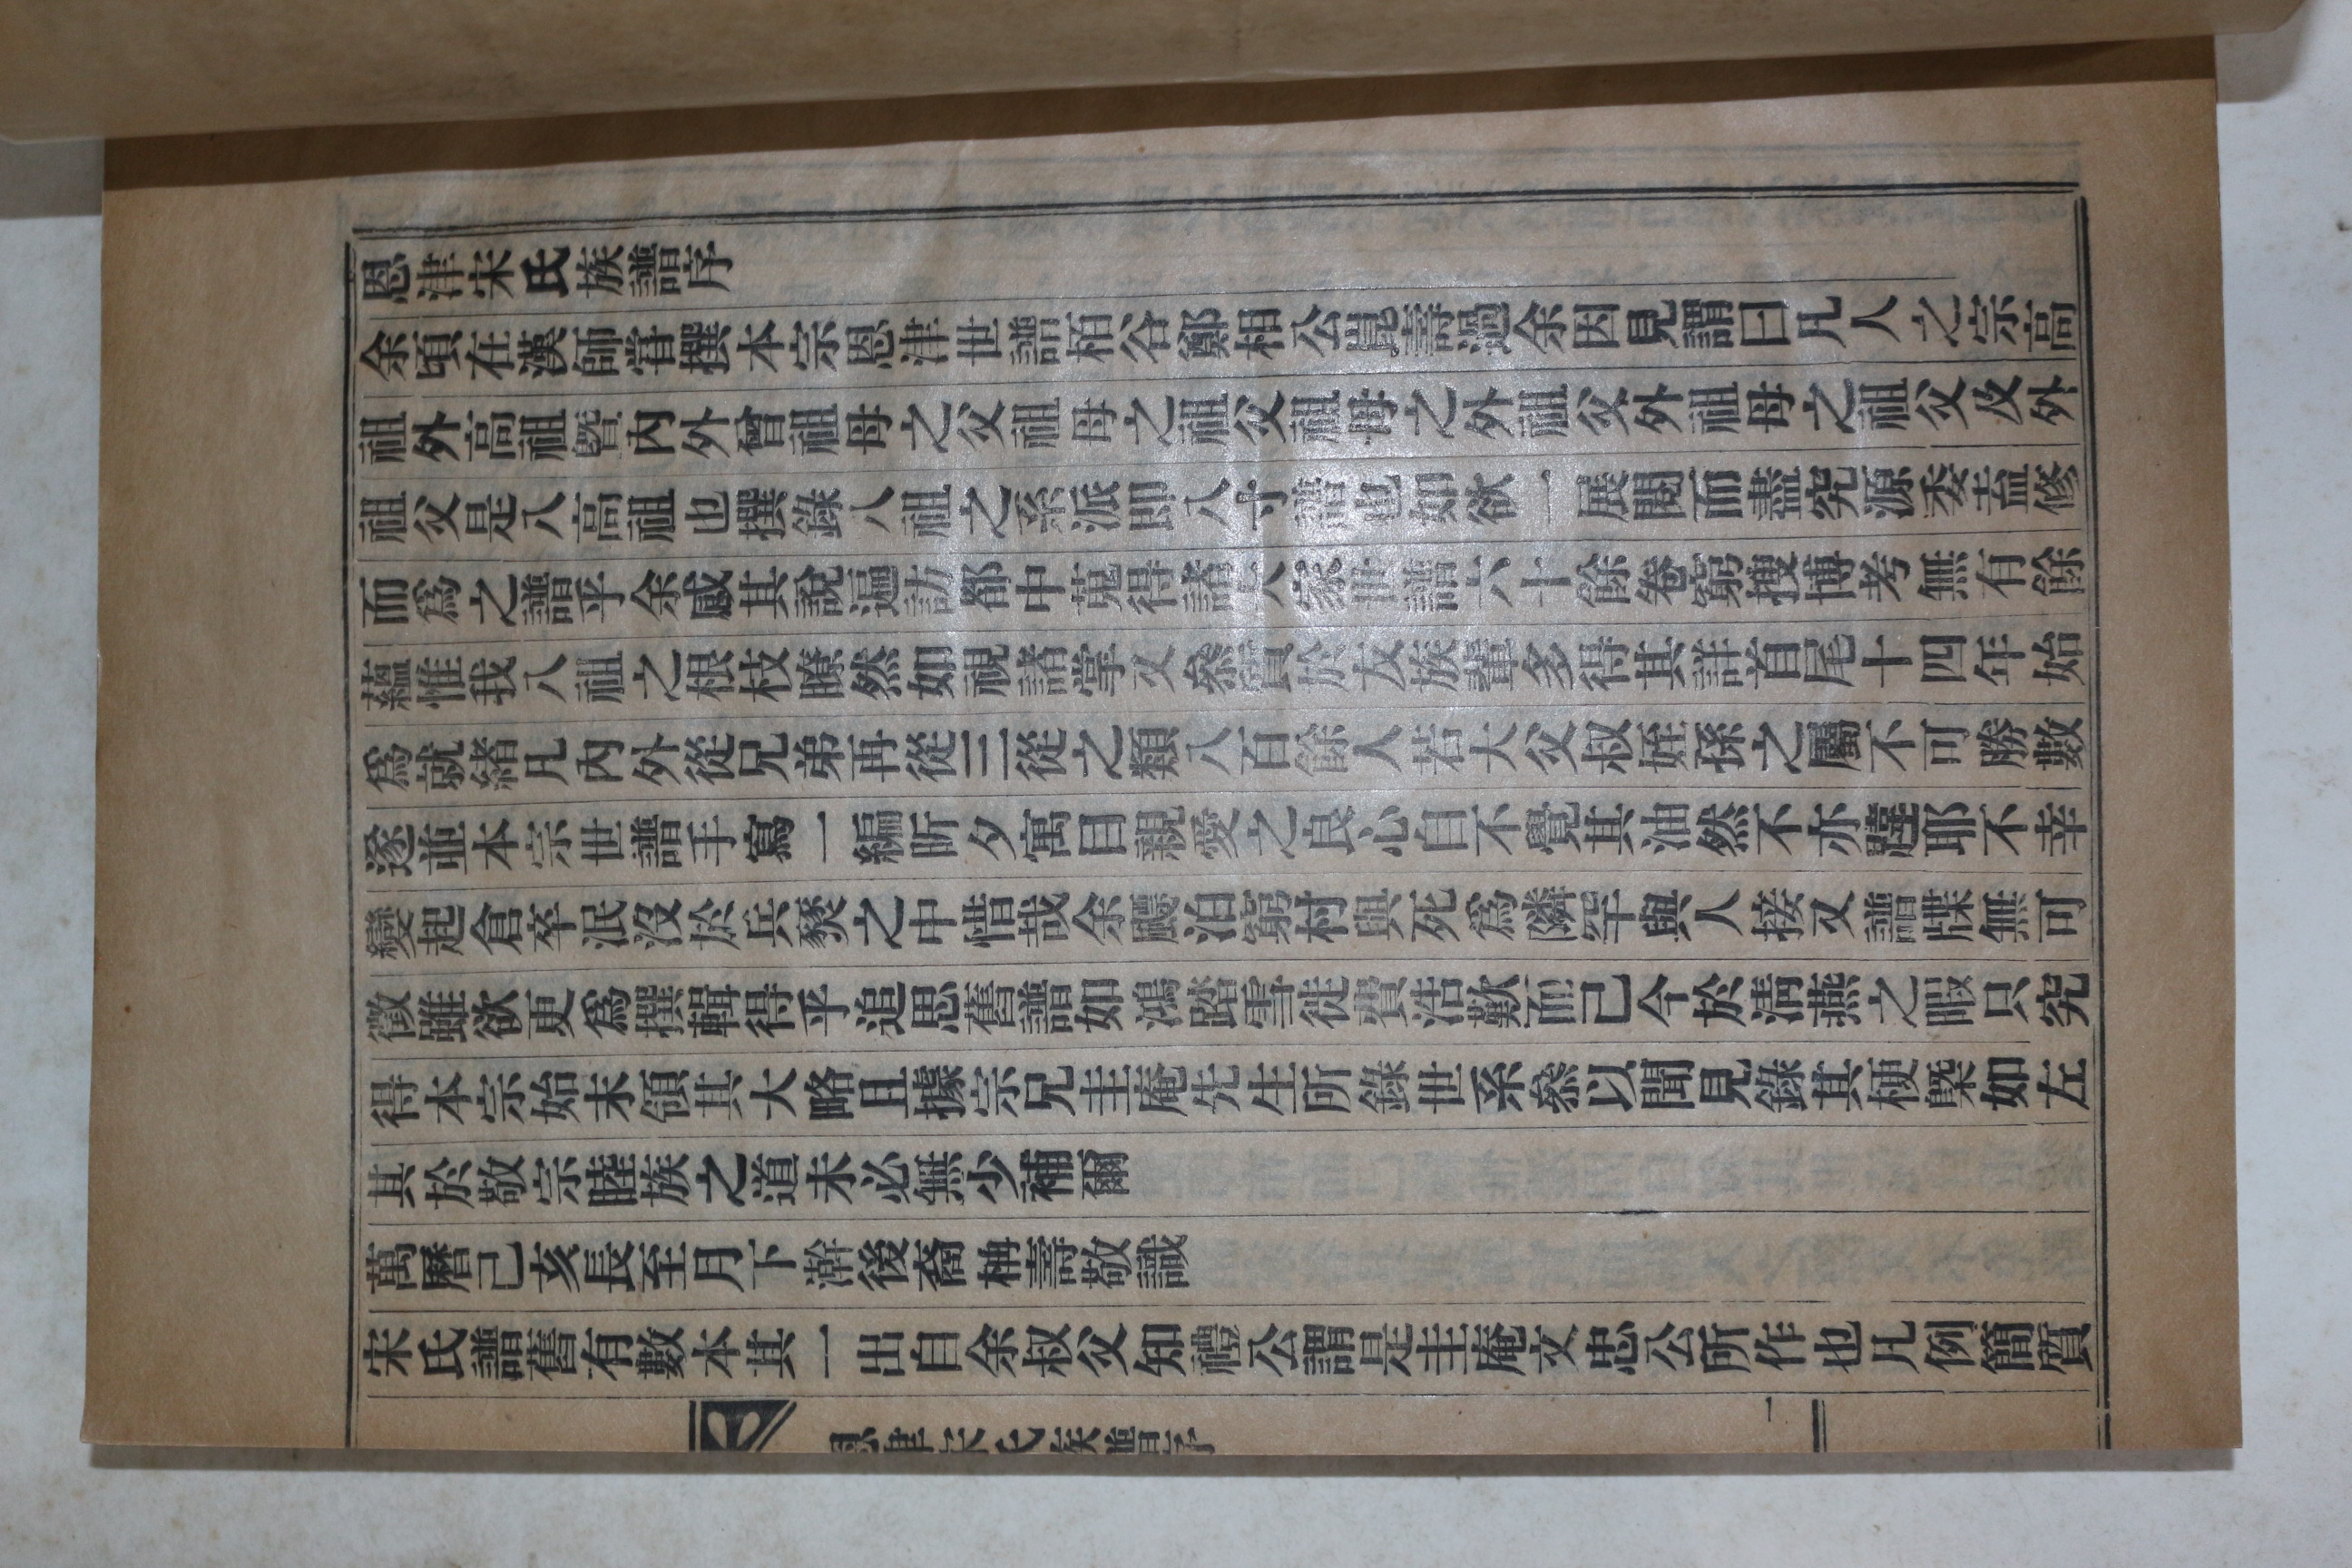 恩津宋氏族譜序
余頃在漢師嘗撰本宗恩津世譜栢谷鄭相公崑壽過余因見謂曰凡人之宗高
祖外高祖曁內外曾祖母之父祖母之祖父祖母之外祖父外祖母之祖父及外
祖父是八高祖也撰錄八祖之系派卽八寸譜也如欲一展閱而盡究源委盍修
而爲之譜乎余感其說遍訪都中蒐得諸人家世譜六十餘卷窮搜博考無有餘
蘊惟我八祖之根枝瞭然如視諸掌又叅質於友族輩多得其詳首尾十四年始
爲就緖凡內外從兄弟再從三從之類八百餘人若大父叔姪孫之屬不可勝數
遂並本宗世譜手寫一編昕夕寓目親愛之良心自不覺其油然不亦韙耶不幸
變起倉卒泯沒於兵燹之中惜哉余飄泊窮村與死爲隣罕與人接又譜牒無可
徵雖欲更爲撰輯得乎追思舊譜如鴻踏雪徒費浩歎而已今於淸燕之暇只究
得本宗始末領其大略且據宗兄圭庵先生所錄世系叅以聞見錄其梗槩如左
其於敬宗睦族之道未必無少補爾
萬曆己亥長至月下澣後裔柟壽敬識
宋氏譜舊有數本其一出自余叔父知禮公謂是圭庵文忠公所作也凡例簡質
恩津宋氏族譜序
一